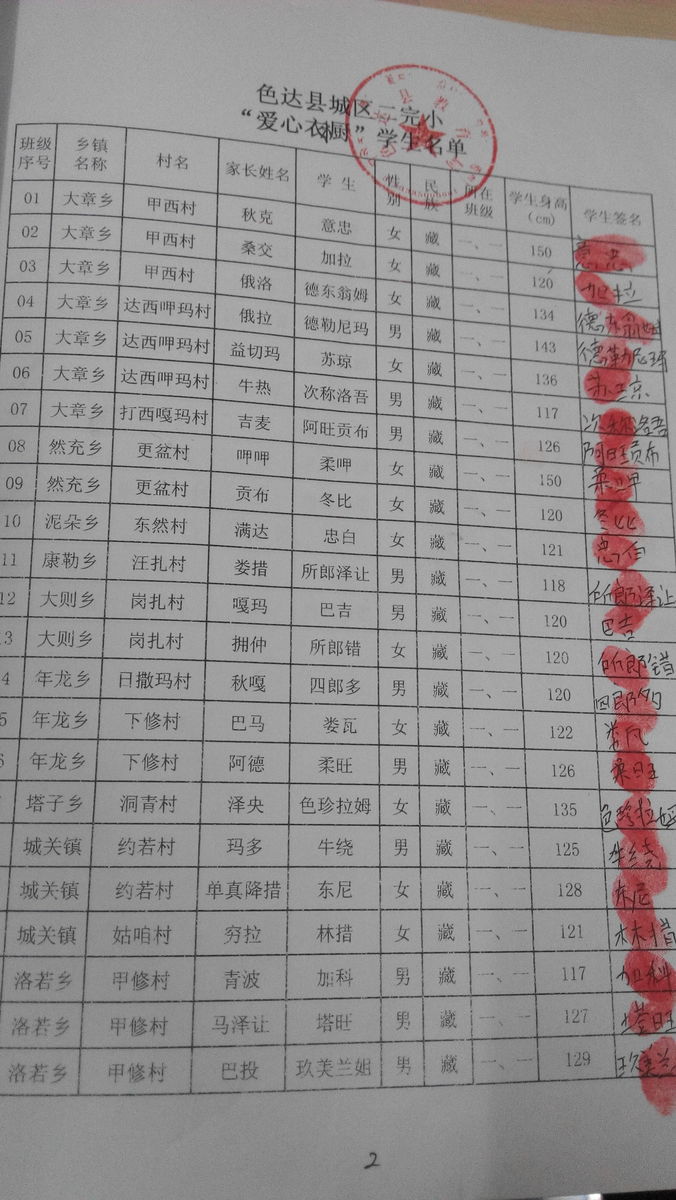 色达县城区二完小
“爱心衣橱”学生名单
班级序号 乡镇名称 村名 家长姓名 学生 性别 民族 所在班级 学生身高(cm) 学生签名
01 大章乡 甲西村 秋克 意忠 女 藏 一、一 150 意忠
02 大章乡 甲西村 桑交 加拉 女 藏 一、一 120 加拉
03 大章乡 甲西村 俄洛 德东翁姆 女 藏 一、一 134 德东翁姆
04 大章乡 达西呷玛村 俄拉 德勒尼玛 男 藏 一、一 143 德勒尼玛
05 大章乡 达西呷玛村 益切玛 苏琼 女 藏 一、一 136 苏琼
06 大章乡 达西呷玛村 牛热 次称洛吾 男 藏 一、一 117 次称洛吾
07 大章乡 打西嘎玛村 吉麦 阿旺贡布 男 藏 一、一 126 阿旺贡布
08 然充乡 更盆村 呷呷 柔呷 女 藏 一、一 150 柔呷
09 然充乡 更盆村 贡布 冬比 女 藏 一、一 120 冬比
10 泥朵乡 东然村 满达 忠白 女 藏 一、一 121 忠白
11 康勒乡 汪扎村 娄措 所郎泽让 男 藏 一、一 118 所郎泽让
12 大则乡 岗扎村 嘎玛 巴吉 男 藏 一、一 120 巴吉
3 大则乡 岗扎村 拥仲 所郎错 女 藏 一、一 120 所郎错
4 年龙乡 日撒玛村 秋嘎 四郎多 男 藏 一、一 120 四郎多
5 年龙乡 下修村 巴马 娄瓦 女 藏 一、一 122
年龙乡 下修村 阿德 柔旺 男 藏 一、一 126 柔旺
塔子乡 洞青村 泽央 色珍拉姆 女 藏 一、一 135 色珍拉姆
城关镇 约若村 玛多 牛绕 男 藏 一、一 125 牛绕
城关镇 约若村 单真降措 东尼 女 藏 一、一 128 东尼
城关镇 姑咱村 穷拉 林措 女 藏 一、一 121 林措
洛若乡 甲修村 青波 加科 男 藏 一、一 117 加科
洛若乡 甲修村 马泽让 塔旺 男 藏 一、一 127 塔旺
洛若乡 甲修村 巴投 玖美兰姐 男 藏 一、一 129 玖美兰
2